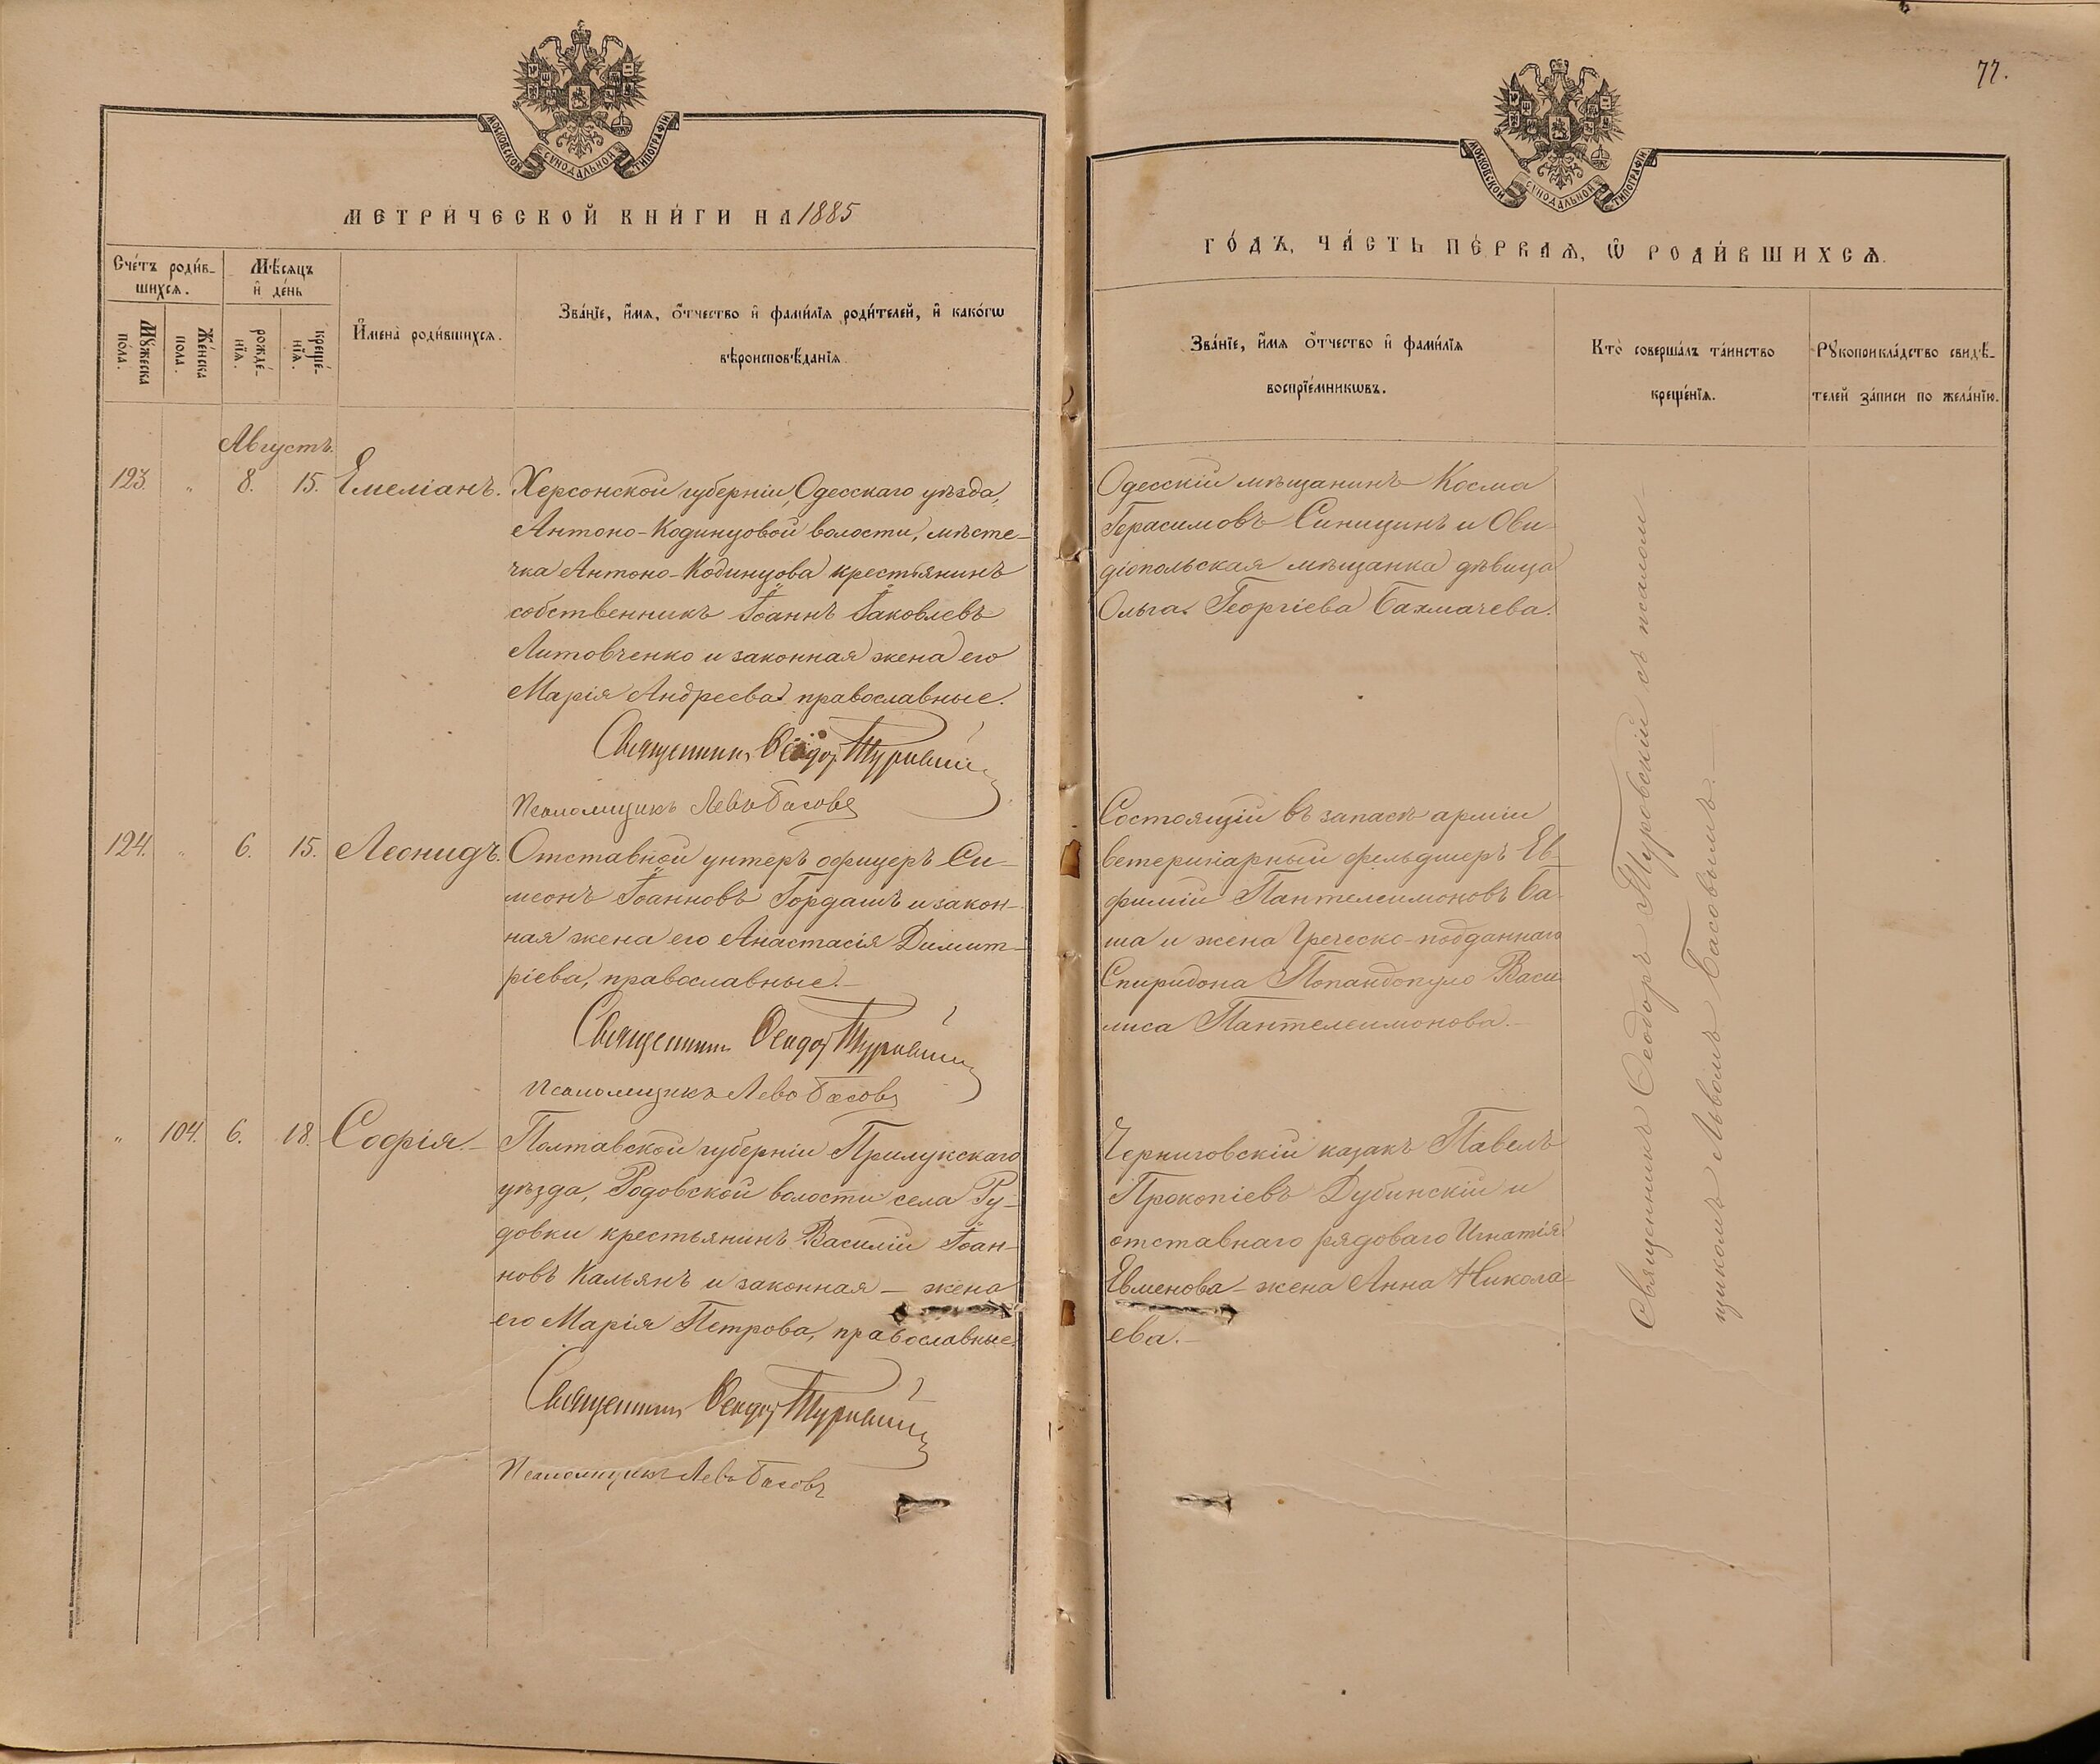 МОСКОВСКОЙ СУНОДАЛЬНОЙ ТИПОГРАФІИ
МЕТРИ́ЧЕСКОЙ КНИ́ГИ НА 1885
Сче́тъ роди́в-
шихсѧ.
Мѣ́сѧцъ
и҆ де́нь
Мꙋ́жеска
по́ла.
Же́нска
пола.
рожде́-
нїѧ.
креще́-
нїѧ.
И҆мена̀ роди́вшихсѧ.
Зва́нїе, и҆́мѧ, ѻ҆́тчество и҆ фами́лїѧ роди́телей, и҆ како́гѡ
вѣроисповѣ́данїѧ.
Августъ.
123. " 8. 15. Емеліанъ.
Херсонской губерніи, Одесскаго уѣзда,
Антоно-Кодинцовой волости, мѣсте-
чка Антоно-Кодинцова крестьянинъ
собственникъ Іоаннъ Іаковлевъ
Литовченко и законная жена его
Марія Андреева православные.
Священникъ Ѳеодоръ Туровскій
Псаломщикъ Левъ Басовъ
124. " 6. 15. Леонидъ.
Отставной унтеръ офицеръ Си-
меонъ Іоанновъ Гордашъ и закон-
ная жена его Анастасія Димит-
ріева, православные.-
Священникъ Ѳеодоръ Туровскій
Псаломщикъ Левъ Басовъ
" 104. 6. 18. Софія.-
Полтавской губерніи Прилукскаго
уѣзда, Рудовской волости села Ру-
довки крестьянинъ Василій Іоан-
новъ Кальянъ и законная - жена
его Марія Петрова, православные.
Священникъ Ѳеодоръ Туровскій
Псаломщикъ Левъ Басовъ
77.
МОСКОВСКОЙ СУНОДАЛЬНОЙ ТИПОГРАФІИ
ГО́ДЪ, ЧА́СТЬ ПЕ́РВАѦ, Ѡ҆ РОДИ́ВШИХСѦ.
Зва́нїе, и҆́мѧ ѻ҆́тчество и҆ фами́лїѧ
воспрїе́мникѡвъ.
Кто̀ соверша́лъ та́инство
креще́нїѧ.
Рꙋкоприкла́дство свидѣ́-
телей за́писи по жела́нїю.
Одесскій мѣщанинъ Косма
Герасимовъ Синицинъ и Ови-
діопольская мѣщанка дѣвица
Ольга Георгіева Бахмачева.
Состоящій въ запасѣ арміи
ветеринарный фельдшеръ Ев-
фимій Пантелеимоновъ Ба-
ша и жена Греческо-подданнаго
Спиридона Попандопуло Васи-
лиса Пантелеимонова.-
Черниговскій казакъ Павелъ
Прокопіевъ Дубинскій и
отставнаго рядоваго Игнатія
Евменова - жена Анна Никола-
ева.-
Священникъ Ѳеодоръ Туровскій съ псалом-
щикомъ Львомъ Басовымъ.-